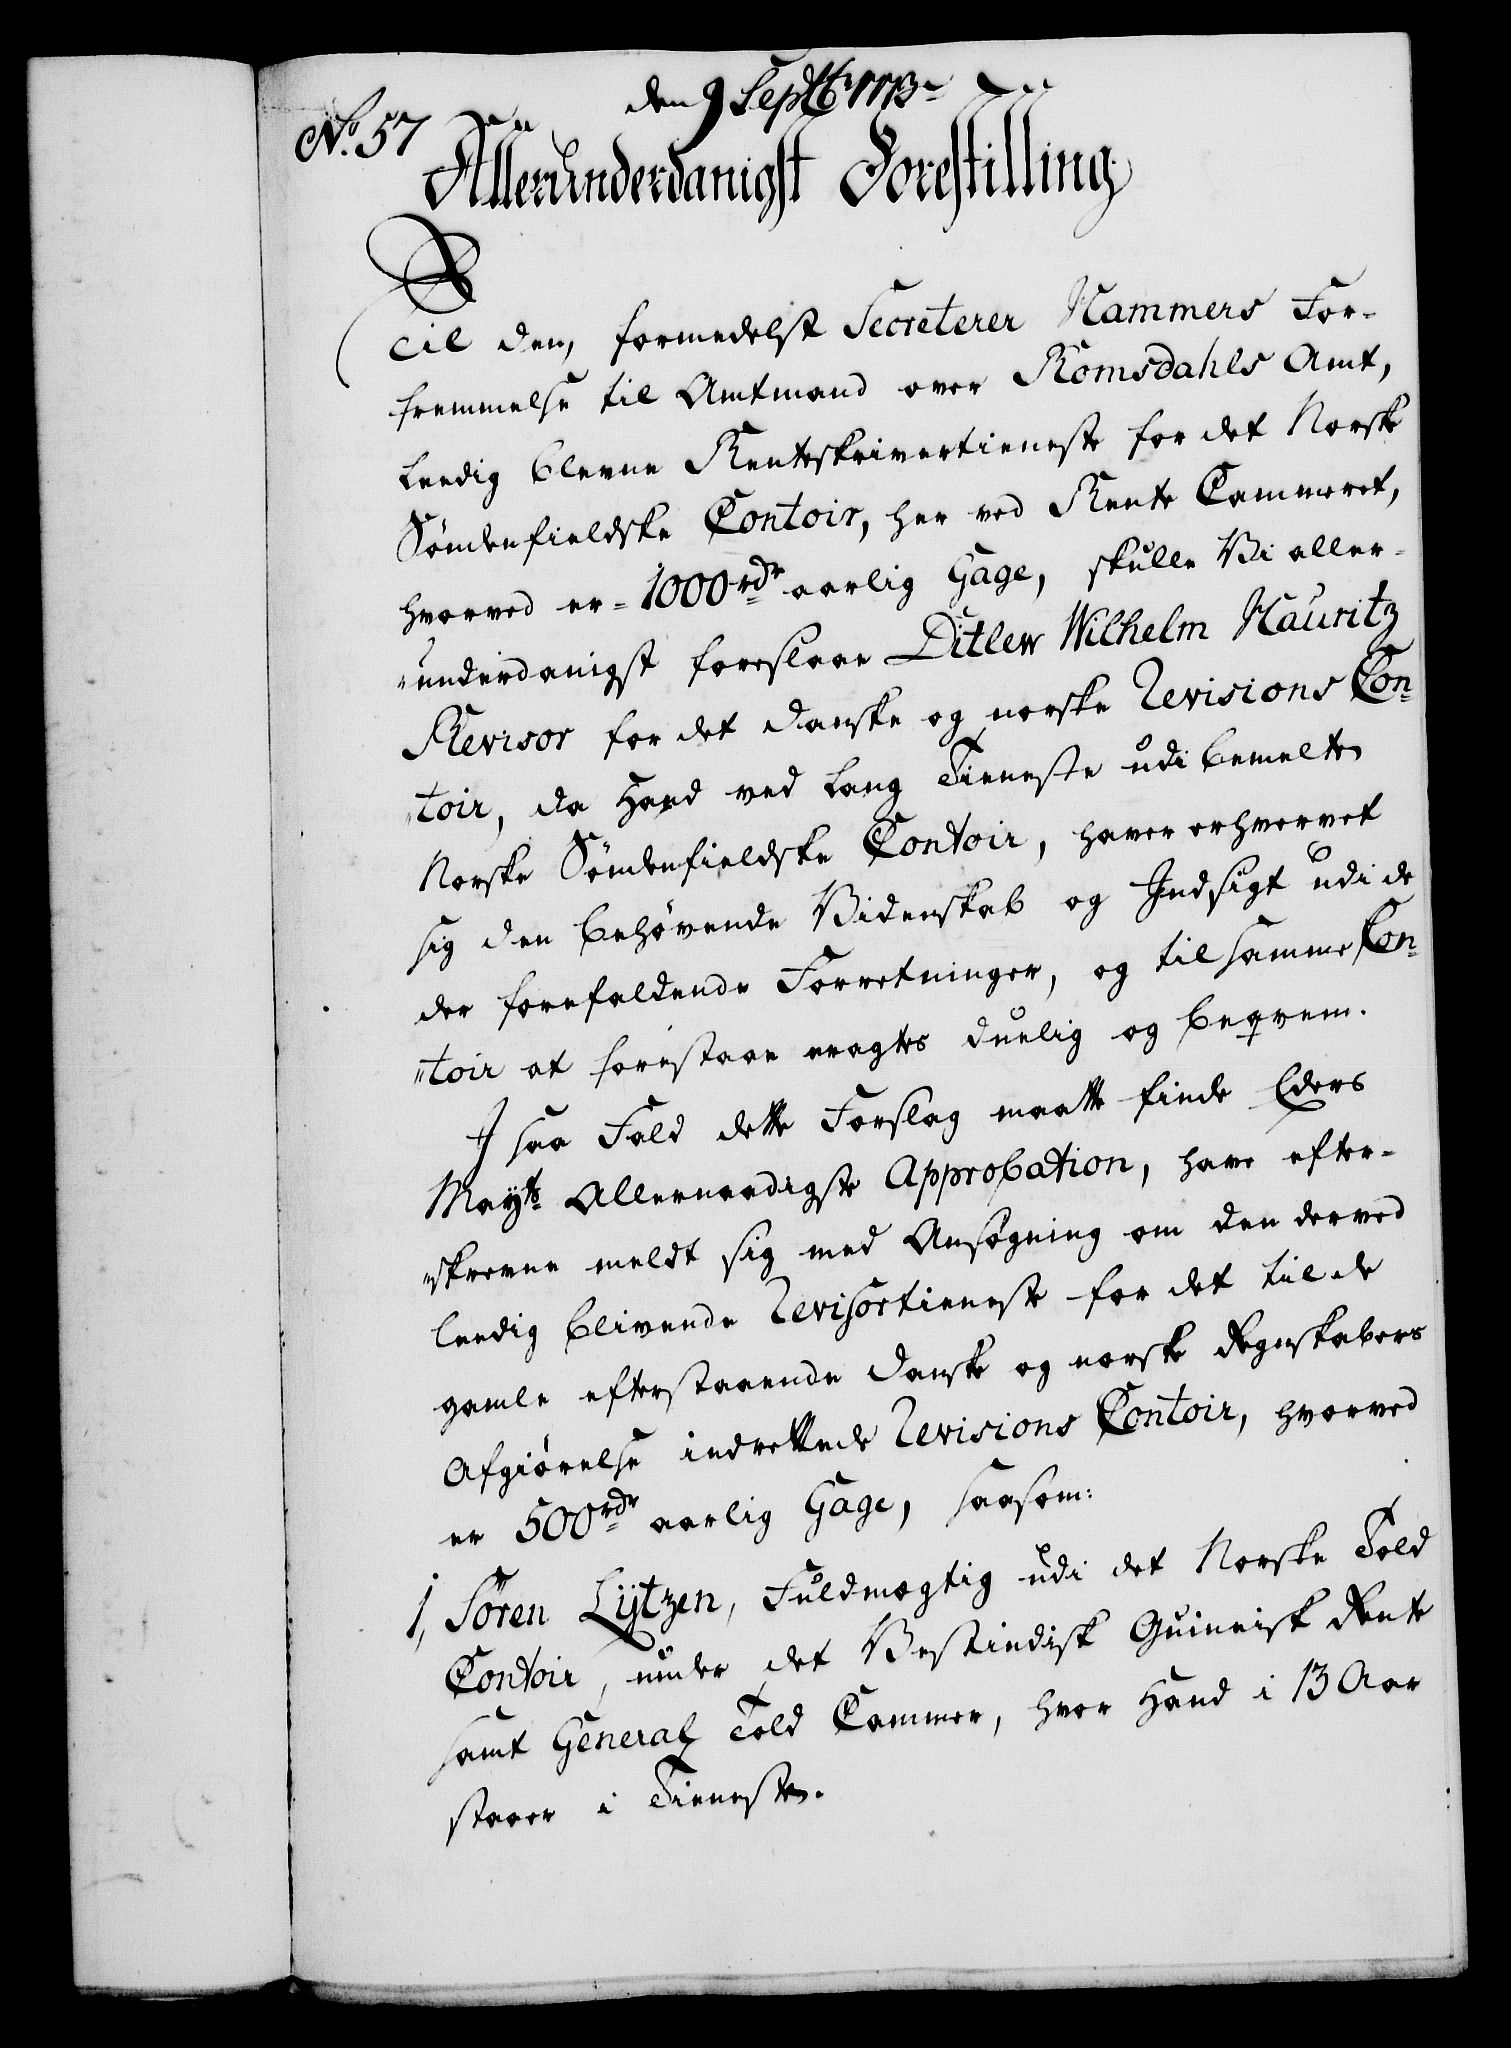 den 9 Septbr 1773
No. 57
Allerunderdanigst Forestilling.
Til den, formedelst Secreterer Hammers For-
fremmelse til Amtmand over Romsdahls Amt,
leedig blevne Renteskrivertieneste for det Norske
Söndenfieldske Contoir, her ved Rente Cammeret,
hvorved er 1000 rdr aarlig Gage, skulle Vi aller-
underdanigst foreslaae Ditlew Wilhelm Hauritz
Revisor for det danske og norske Revisions Con-
toir, da Hand ved lang Tieneste udi bemelte
Norske Söndenfieldske Contoir, haver erhvervet
sig den behövende Videnskab og Indsigt udi de
der forefaldende Forretninger, og til samme Con-
toir at forestaae eragtes duelig og beqvem.
I saa Fald dette Forslag maatte finde Eders
Mayts Allernaadigste Approbation, have efter-
skrevne meldt sig med Ansøgning om den derved
leedig blivende Revisortieneste for det til de
gamle efterstaaende danske og norske Regnskabers
Afgiørelse indrettede Revisions Contoir, hvorved
er 500 rdr aarlig Gage, saasom:
1, Sören Lytzen, Fuldmægtig udi det Norske Told
Contoir, under det Vestindisk Guineisk Rente
samt General Told Cammer, hvor Hand i 13 Aar
staaer i Tieneste.